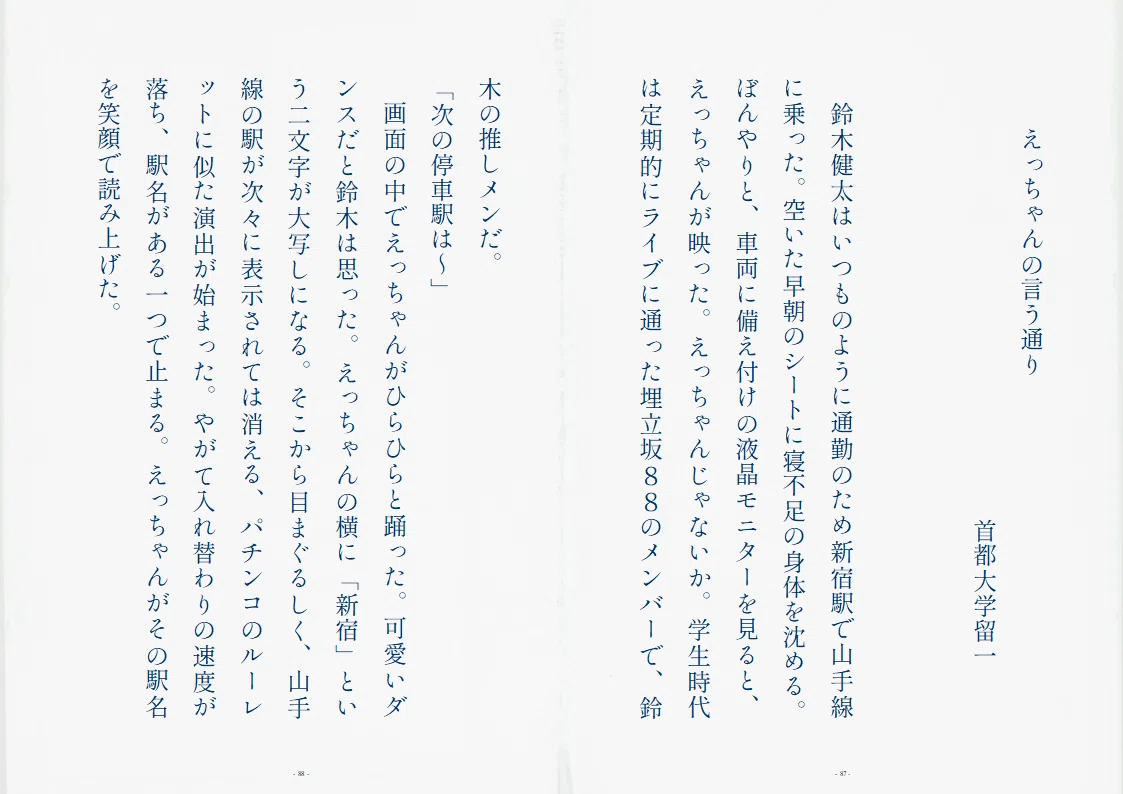 えっちゃんの言う通り
首都大学留一
　鈴木健太はいつものように通勤のため新宿駅で山手線
に乗った。空いた早朝のシートに寝不足の身体を沈める。
ぼんやりと、車両に備え付けの液晶モニターを見ると、
えっちゃんが映った。えっちゃんじゃないか。学生時代
は定期的にライブに通った埋立坂８８のメンバーで、鈴
- 87 -
木の推しメンだ。
「次の停車駅は〜」
　画面の中でえっちゃんがひらひらと踊った。可愛いダ
ンスだと鈴木は思った。えっちゃんの横に「新宿」とい
う二文字が大写しになる。そこから目まぐるしく、山手
線の駅が次々に表示されては消える、パチンコのルーレ
ットに似た演出が始まった。やがて入れ替わりの速度が
落ち、駅名がある一つで止まる。えっちゃんがその駅名
を笑顔で読み上げた。
- 88 -